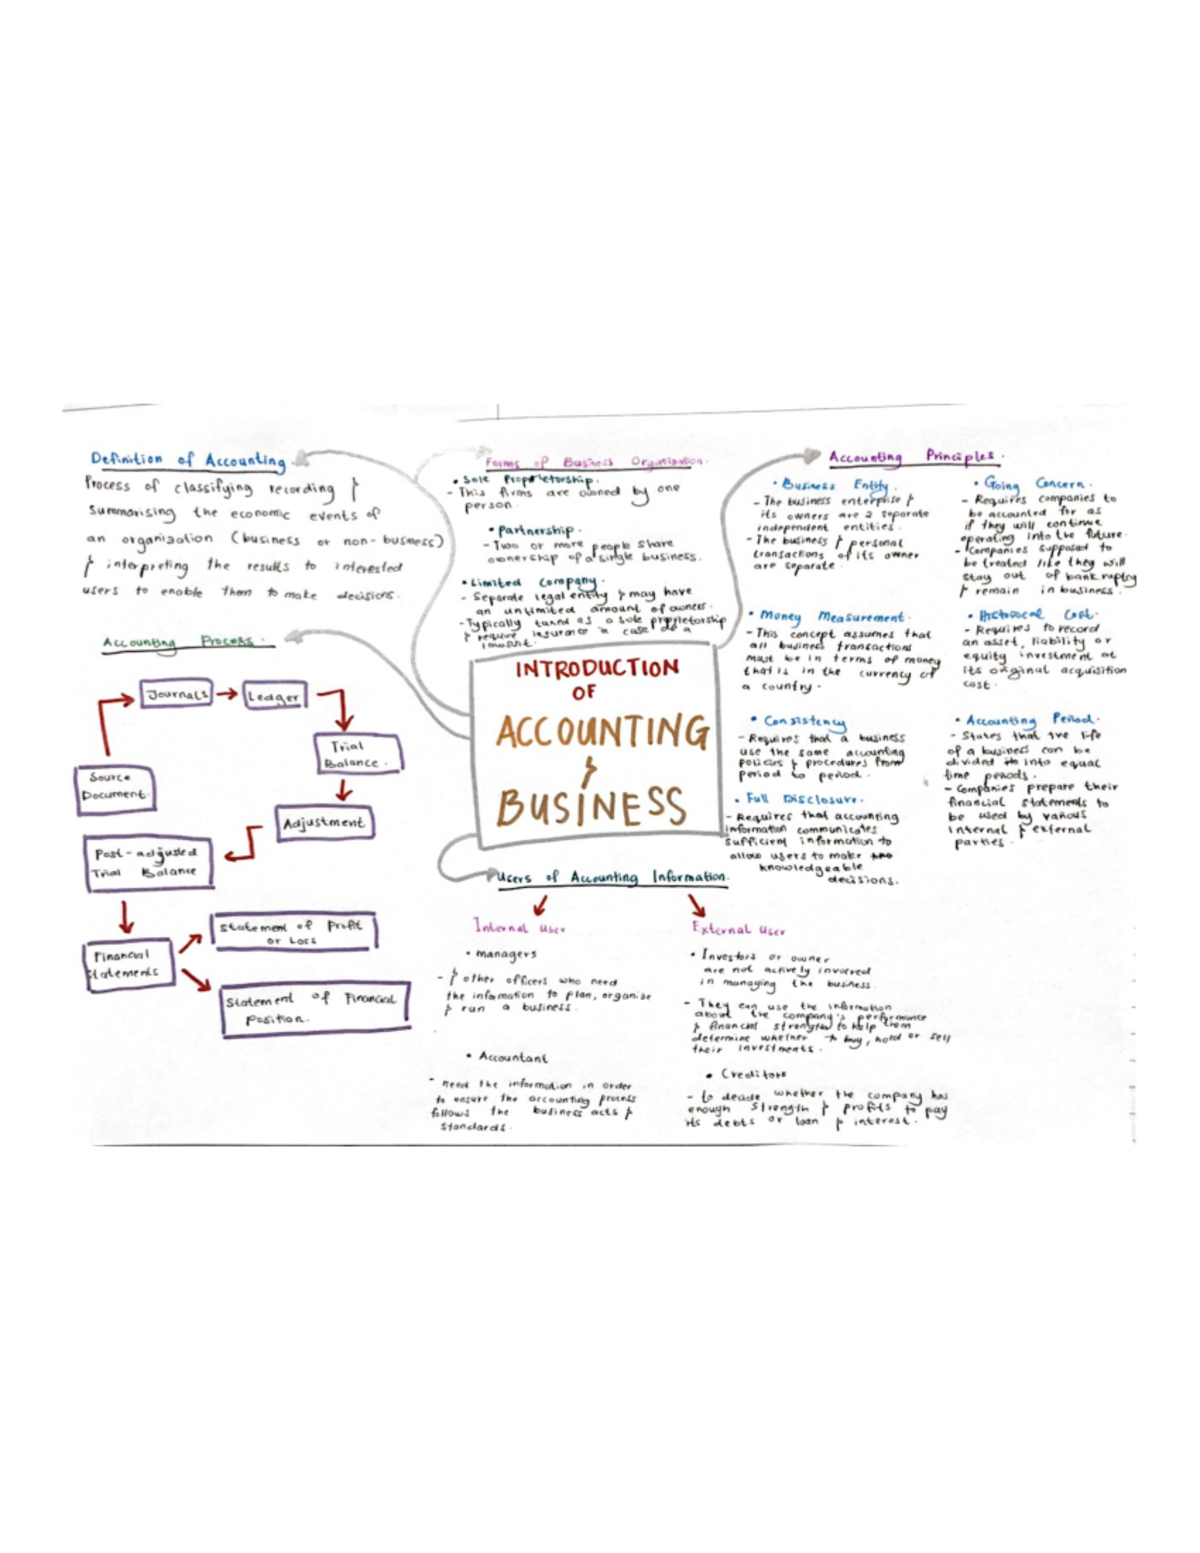 Definition of Accounting
Process of classifying recording &
summarising the economic events of
an organisation (business or non-business)
& interpreting the results to interested
users to enable them to make decisions.
Accounting Process.
Source
Document.
Journals
Ledger
Trial
Balance.
Adjustment
Post-adjusted
Trial Balance
Financial
Statements
Statement of Profit
or Loss
Statement of Financial
Position.
Forms of Business Organization.
• Sole Proprietorship.
- This firms are owned by one
person.
• Partnership.
- Two or more people share
ownership of a single business.
• Limited Company.
- Separate legal entity & may have
an unlimited amount of owners.
- Typically taxed as a sole proprietorship
& require insurance in case of a
lawsuit.
INTRODUCTION
OF
ACCOUNTING
&
BUSINESS
Accounting Principles.
• Business Entity.
- The business enterprise &
its owners are 2 separate
independent entities.
- The business & personal
transactions of its owner
are separate.
• Money Measurement.
- This concept assumes that
all business transactions
must be in terms of money
that is in the currency of
a country.
• Consistency
- Requires that a business
use the same accounting
policies & procedures from
period to period.
• Full Disclosure.
- Requires that accounting
information communicates
sufficient information to
allow users to make
knowledgeable
decisions.
• Going Concern.
- Requires companies to
be accounted for as
if they will continue
operating into the future.
- Companies supposed to
be treated like they will
stay out of bankruptcy
& remain in business.
• Historical Cost.
- Requires to record
an asset, liability or
equity investment at
its original acquisition
cost.
• Accounting Period.
- States that the life
of a business can be
divided into equal
time periods.
- Companies prepare their
financial statements to
be used by various
internal & external
parties.
Users of Accounting Information.
Internal User
• managers
- & other officers who need
the information to plan, organise
& run a business.
• Accountant
- need the information in order
to ensure the accounting process
follows the business acts &
standards.
External User
• Investors or owner
are not actively involved
in managing the business.
- They can use the information
about the company's performance
& financial strength to help them
determine whether to buy, hold or sell
their investments.
• Creditors
- to decide whether the company has
enough strength & profits to pay
its debts or loan & interest.